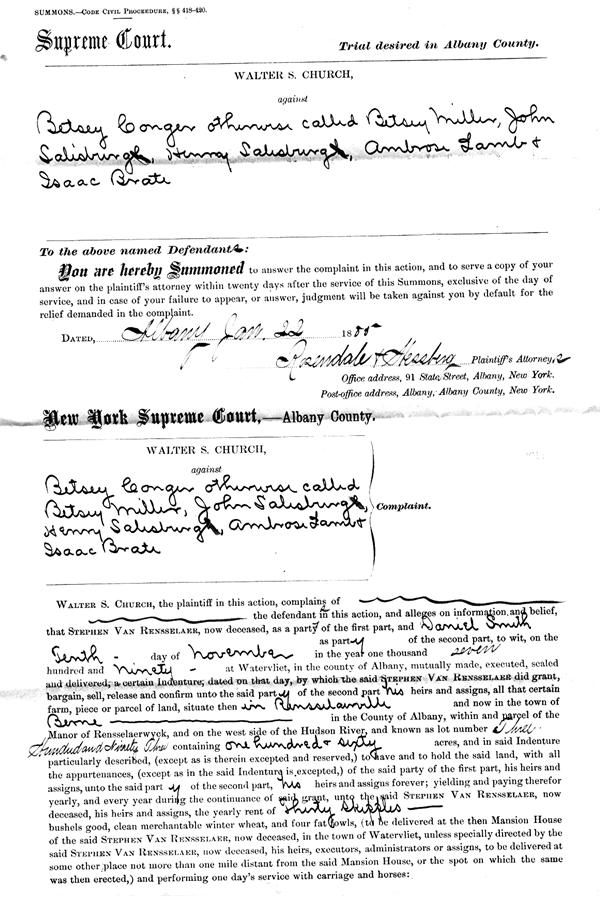 SUMMONS.—CODE CIVIL PROCEEDURE, §§ 418-420.
Supreme Court.
Trial desired in Albany County.
WALTER S. CHURCH,
against
Betsey Conger otherwise called Betsey Miller, John
Salisburgh, Henry Salisburgh, Ambrose Lamb +
Isaac Brate
To the above named Defendants:
You are hereby Summoned to answer the complaint in this action, and to serve a copy of your
answer on the plaintiff's attorney within twenty days after the service of this Summons, exclusive of the day of
service, and in case of your failure to appear, or answer, judgment will be taken against you by default for the
relief demanded in the complaint.
DATED, Albany Jan. 22 1885
Rosendale & Hessberg Plaintiff's Attorneys
Office address, 91 State Street, Albany, New York.
Post-office address, Albany, Albany County, New York.
New York Supreme Court,—Albany County.
WALTER S. CHURCH,
against
Betsey Conger otherwise called
Betsey Miller, John Salisburgh,
Henry Salisburgh, Ambrose Lamb +
Isaac Brate
Complaint.
WALTER S. CHURCH, the plaintiff in this action, complains of
the defendant in this action, and alleges on information and belief,
that STEPHEN VAN RENSSELAER, now deceased, as a party of the first part, and Daniel Smith
as party of the second part, to wit, on the
Tenth - day of November in the year one thousand seven
hundred and Ninety - at Watervliet, in the county of Albany, mutually made, executed, sealed
and delivered, a certain Indenture, dated on that day, by which the said STEPHEN VAN RENSSELAER did grant,
bargain, sell, release and confirm unto the said party of the second part his heirs and assigns, all that certain
farm, piece or parcel of land, situate then in Rensselaerville and now in the town of
Berne in the County of Albany, within and parcel of the
Manor of Rensselaerwyck, and on the west side of the Hudson River, and known as lot number Three
Hundred and Ninety Three containing one hundred + sixty acres, and in said Indenture
particularly described, (except as is therein excepted and reserved,) to have and to hold the said land, with all
the appurtenances, (except as in the said Indenture is excepted,) of the said party of the first part, his heirs and
assigns, unto the said party of the second part, his heirs and assigns forever; yielding and paying therefor
yearly, and every year during the continuance of said grant, unto the said STEPHEN VAN RENSSELAER, now
deceased, his heirs and assigns, the yearly rent of Thirty Skipples
bushels good, clean merchantable winter wheat, and four fat fowls, (to be delivered at the then Mansion House
of the said STEPHEN VAN RENSSELAER, now deceased, in the town of Watervliet, unless specially directed by the
said STEPHEN VAN RENSSELAER, now deceased, his heirs, executors, administrators or assigns, to be delivered at
some other place not more than one mile distant from the said Mansion House, or the spot on which the same
was then erected,) and performing one day's service with carriage and horses: